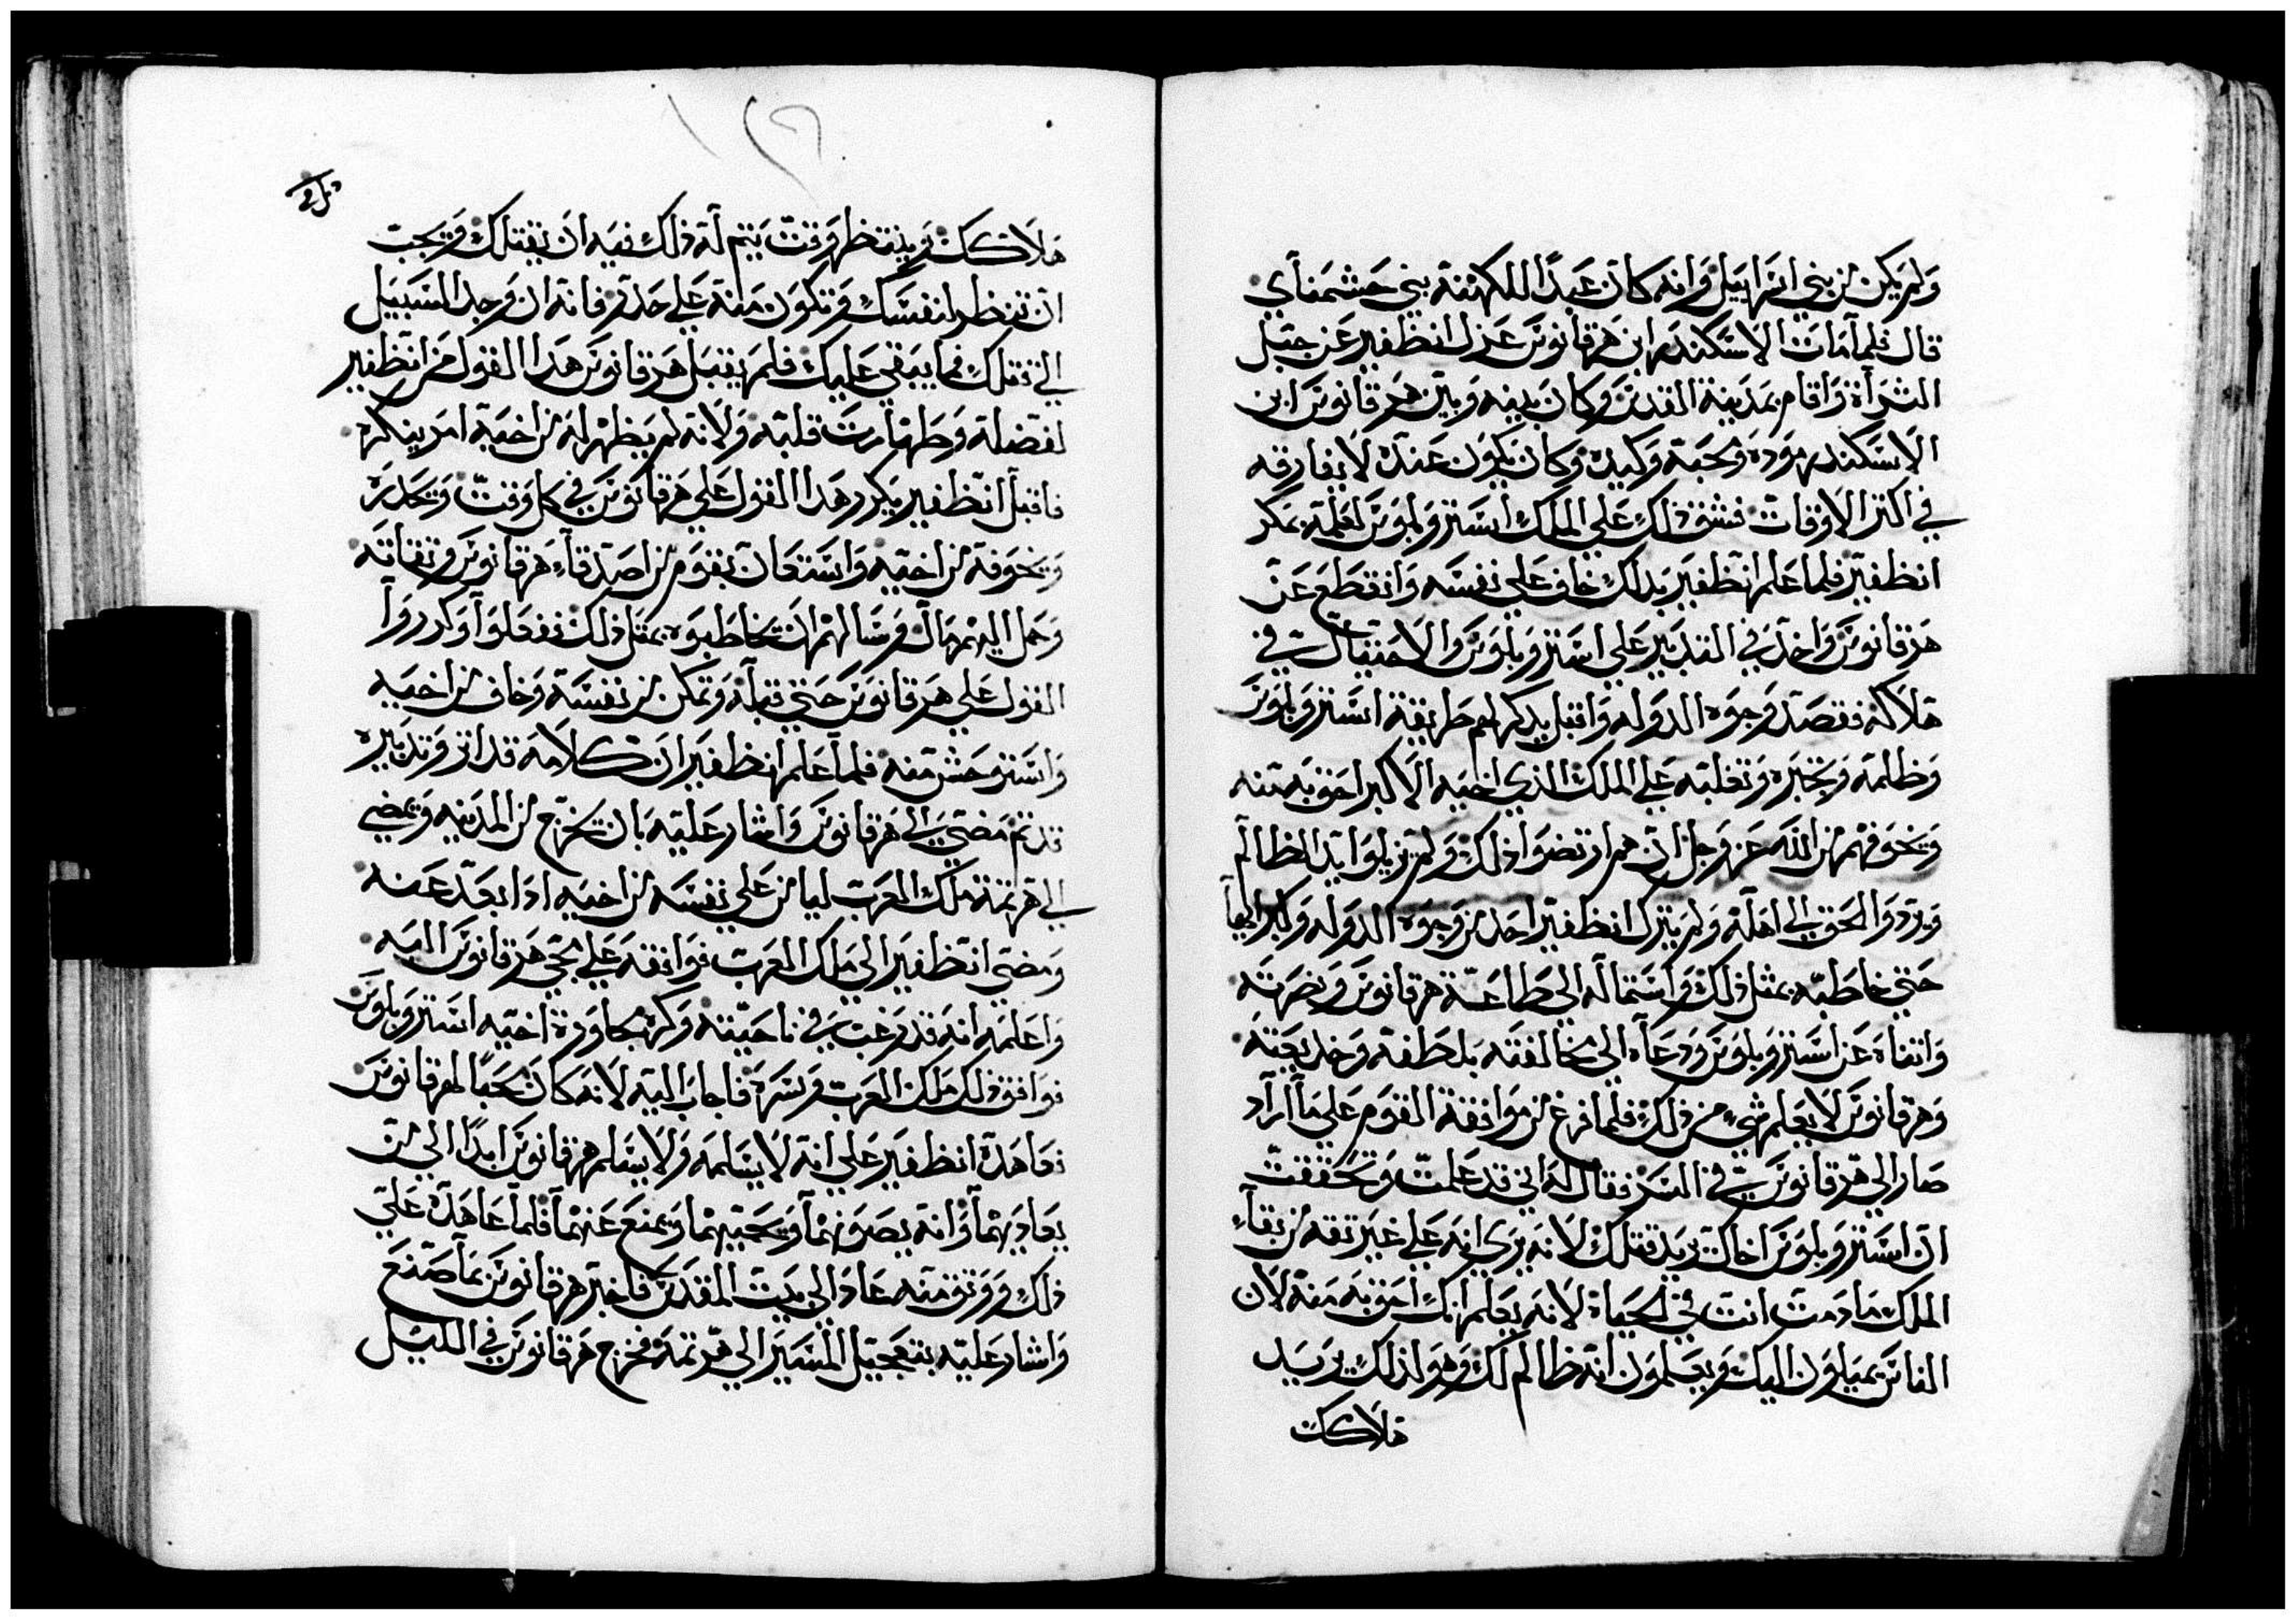 ولم يكن من بني اسراييل وانه كان عبدا للكهنة بني حشمناي
قال فلما مات الاسكندر ابن هرقانوس عزل انظفير عن جبل
الشراة واقام بمدينة القدس وكان بينه وبين هرقانوس ابن
الاسكندر مودة ومحبة وكيدة وكان يكون عنده لا يفارقه
في اكتر الاوقات فشق ذلك علي الملك استروبلوس لعلمه بمكر
انظفير فلما علم انظفير بدلك خاف علي نفسه وانقطع عن
هرقانوس واخذ في التدبير علي استروبلوس والاحتيال في
هلاكه فقصد وجوه الدوله واقبل يدكر لهم طريقة استروبلوس
وظلمه وتجبره وتغلبه علي الملك الذي اخيه الاكبر احق به منه
ويخوفهم من الله عز وجل ان هم ارتضوا ذلك ولم يزيلوا يد الظالم
ويردوا الحق الي اهله ولم يترك انظفير احد من وجوه الدوله وكبرايها
حتي خاطبه بمثل ذلك واستماله الي طاعة هرقانوس ونصرته
واتناه عن استروبلوس ودعاه الي مخالفته بلطفه وخديعته
وهرقانوس لا يعلم شي من ذلك فلما فرغ من موافقة القوم علي ما اراد
صار الي هرقانوس في السر فقال له اني قد علمت وتحققت
ان استروبلوس اخاك يريد قتلك لانه يري انه علي غير تقه من بقاء
الملك ما دمت انت في الحياة لانه يعلم انك احق به منه لان
الناس يميلون اليك ويعلمون انه ظالم لك وهو لذلك يريد
هلاكك
هلاكك وينتظر وقت يتم له ذلك فيه ان يقتلك ويجب
ان تنظر لنفسك وتكون منه علي حدر فانه ان وجد السبيل
الي قتلك فما يبقي عليك فلم يقبل هرقانوس هدا القول من انظفير
لفضله وطهارت قلبه ولانه لم يظهر له من اخيه امر ينكره
فاقبل انظفير يكرر هدا القول علي هرقانوس في كل وقت ويحدره
ويخوفه من اخيه واستعان بقوم من اصدقاء هرقانوس وتقاته
وحمل اليهم مال وسالهم ان يخاطبوه بمتل ذلك ففعلوا وكرروا
القول علي هرقانوس حتي قبله وتمكن من نفسه وخاف من اخيه
واستوحش منه فلما علم انظفير ان كلامه قد اتر وتدبيره
قد تم مضي الي هرقانوس واشار عليه بان يخرج من المدينه ويمضي
الي هرتمة ملك العرب ليامن علي نفسه من اخيه ادا بعد عنه
ومضي انظفير الي ملك العرب فوافقه علي مجي هرقانوس اليه
واعلمه انه قد رغب في ناحيته وكره مجاورة اخيه استروبلوس
فوافق ذلك ملك العرب وسره فاجاب اليه لانه كان محبا لهرقانوس
فعاهده انظفير علي انه لا يسلمه ولا يسلم هرقانوس ابدا الي من
يعاديهما وانه يصونهما ويحميهما ويمنع عنهما فلما عاهده علي
ذلك ووتق منه عاد الي بيت المقدس فاخبر هرقانوس بما صنع
واشار عليه بتعجيل المسير الي هرتمة فخرج هرقانوس في الليل